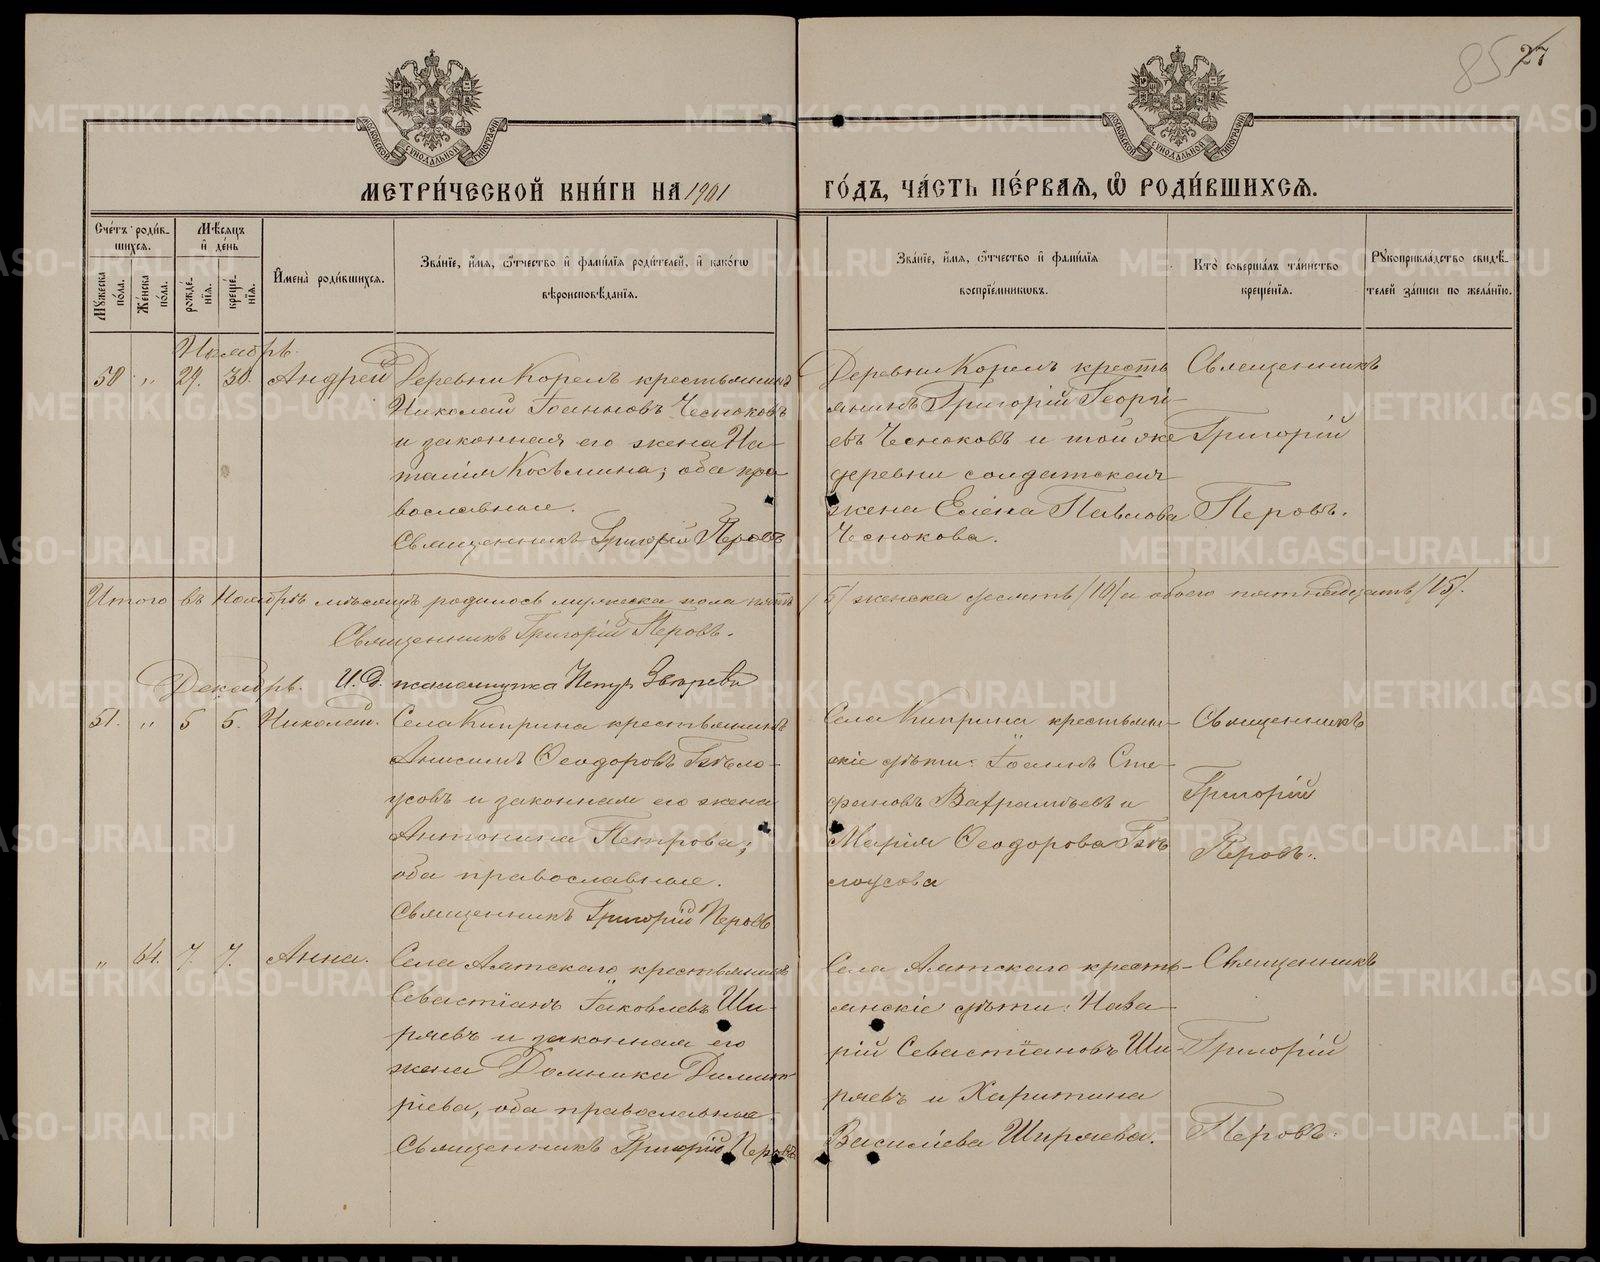 85 27
МЕТРИ́ЧЕСКОЙ КНИ́ГИ НА 1901 ГО́ДЪ, ЧА́СТЬ ПЕ́РВАѦ, Ѡ҆ РОДИ́ВШИХСѦ.
МОСКОВСКОЙ СУНОДАЛЬНОЙ ТИПОГРАФІИ
МОСКОВСКОЙ СУНОДАЛЬНОЙ ТИПОГРАФІИ
Сче́тъ роди́вшихсѧ.
Мѣ́сѧцъ и҆ де́нь
Мꙋ́жеска по́ла.
Же́нска по́ла.
рожде́нїѧ.
креще́нїѧ.
И҆мена̀ роди́вшихсѧ.
Зва́нїе, и҆́мѧ, ѻ҆́тчество и҆ фами́лїѧ роди́телей, и҆ како́гѡ вѣроисповѣ́данїѧ.
Зва́нїе, и҆́мѧ, ѻ҆́тчество и҆ фами́лїѧ воспрїе́мникѡвъ.
Кто̀ соверша́лъ та́инство креще́нїѧ.
Рꙋкоприкла́дство свидѣ́телей за́писи по жела́нїю.
Ноябрь.
50 " 29. 30. Андрей
Деревни Корелъ крестьянинъ
Николай Іоанновъ Чесноковъ
и законная его жена На-
талія Косьмина; оба пра-
вославные.
Священникъ Григорій Перовъ
Деревни Корелъ кресть
янинъ Григорій Георгі-
евъ Чесноковъ и той же
деревни солдатская
жена Елена Павлова
Чеснокова.
Священникъ
Григорій
Перовъ.
Итого въ Ноябрѣ мѣсяцѣ родилось мужеска пола пять /5/ женска десять /10/ а обоего пятнадцать /15/.
Священникъ Григорій Перовъ.
И. д. псаломщика Петръ
Декабрь.
51. " 5 5. Николай.
Села Киприна крестьянинъ
Анисимъ Ѳеодоровъ Бѣло-
усовъ и законная его жена
Антонина Петрова;
оба православные.
Священникъ Григорій Перовъ
Села Киприна крестьян-
скіе дѣти: Іоаннъ Сте-
фановъ Варѳаламѣевъ и
Марія Ѳеодорова Бѣ
лоусова
Священникъ
Григорій
Перовъ.
" 64. 7. 7. Анна.
Села Аятскаго крестьянинъ
Севастіанъ Іаковлевъ Ши-
ряевъ и законная его
жена Домника Димит-
ріева, оба православные
Священникъ Григорій Перовъ
Села Аятскаго кресть-
янскіе дѣти: Наза-
рій Севастіановъ Ши-
ряевъ и Харитина
Василіева Ширяева.
Священникъ
Григорій
Перовъ.
METRIKI.GASO-URAL.RU